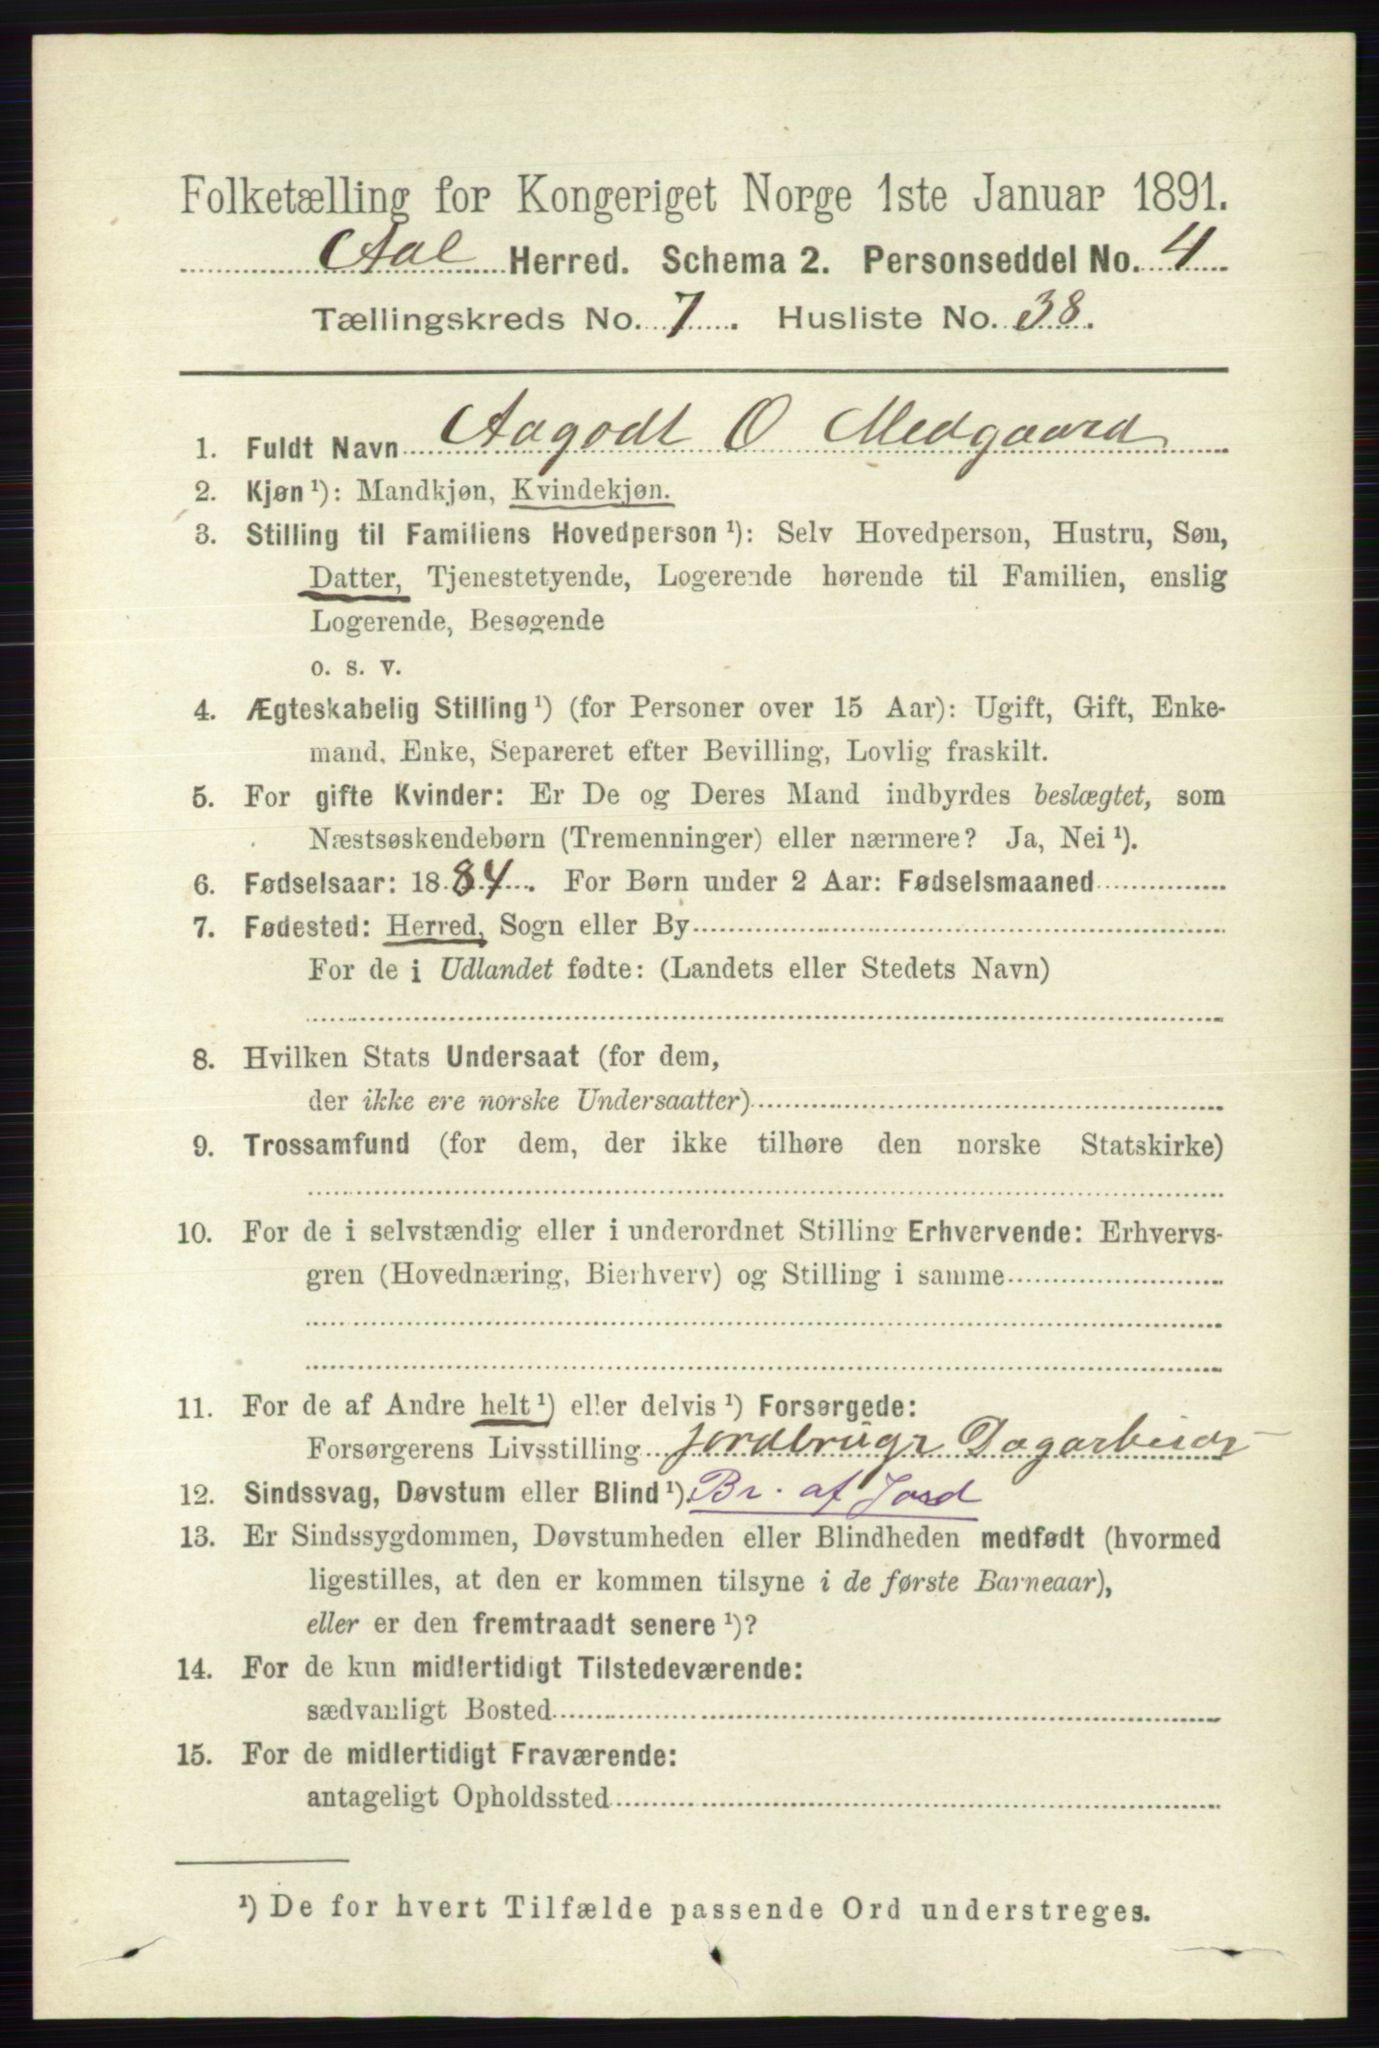 Folketælling for Kongeriget Norge 1ste Januar 1891.
Aal Herred. Schema 2. Personseddel No. 4
Tællingskreds No. 7. Husliste No. 38.
1. Fuldt Navn Aagodt O Medgaard
2. Kjøn ¹): Mandkjøn, Kvindekjøn.
3. Stilling til Familiens Hovedperson ¹): Selv Hovedperson, Hustru, Søn,
Datter, Tjenestetyende, Logerende hørende til Familien, enslig
Logerende, Besøgende
o. s. v.
4. Ægteskabelig Stilling ¹) (for Personer over 15 Aar): Ugift, Gift, Enke-
mand, Enke, Separeret efter Bevilling, Lovlig fraskilt.
5. For gifte Kvinder: Er De og Deres Mand indbyrdes beslægtet, som
Næstsøskendebørn (Tremenninger) eller nærmere? Ja, Nei ¹).
6. Fødselsaar: 1884. For Børn under 2 Aar: Fødselsmaaned
7. Fødested: Herred, Sogn eller By
For de i Udlandet fødte: (Landets eller Stedets Navn)
8. Hvilken Stats Undersaat (for dem,
der ikke ere norske Undersaatter)
9. Trossamfund (for dem, der ikke tilhøre den norske Statskirke)
10. For de i selvstændig eller i underordnet Stilling Erhvervende: Erhvervs-
gren (Hovednæring, Bierhverv) og Stilling i samme
11. For de af Andre helt ¹) eller delvis ¹) Forsørgede:
Forsørgerens Livsstilling Jordbrugr Dagarbeidr
12. Sindssvag, Døvstum eller Blind ¹). Br. af Jord
13. Er Sindssygdommen, Døvstumheden eller Blindheden medfødt (hvormed
ligestilles, at den er kommen tilsyne i de første Barneaar),
eller er den fremtraadt senere ¹)?
14. For de kun midlertidigt Tilstedeværende:
sædvanligt Bosted
15. For de midlertidigt Fraværende:
antageligt Opholdssted
¹) De for hvert Tilfælde passende Ord understreges.